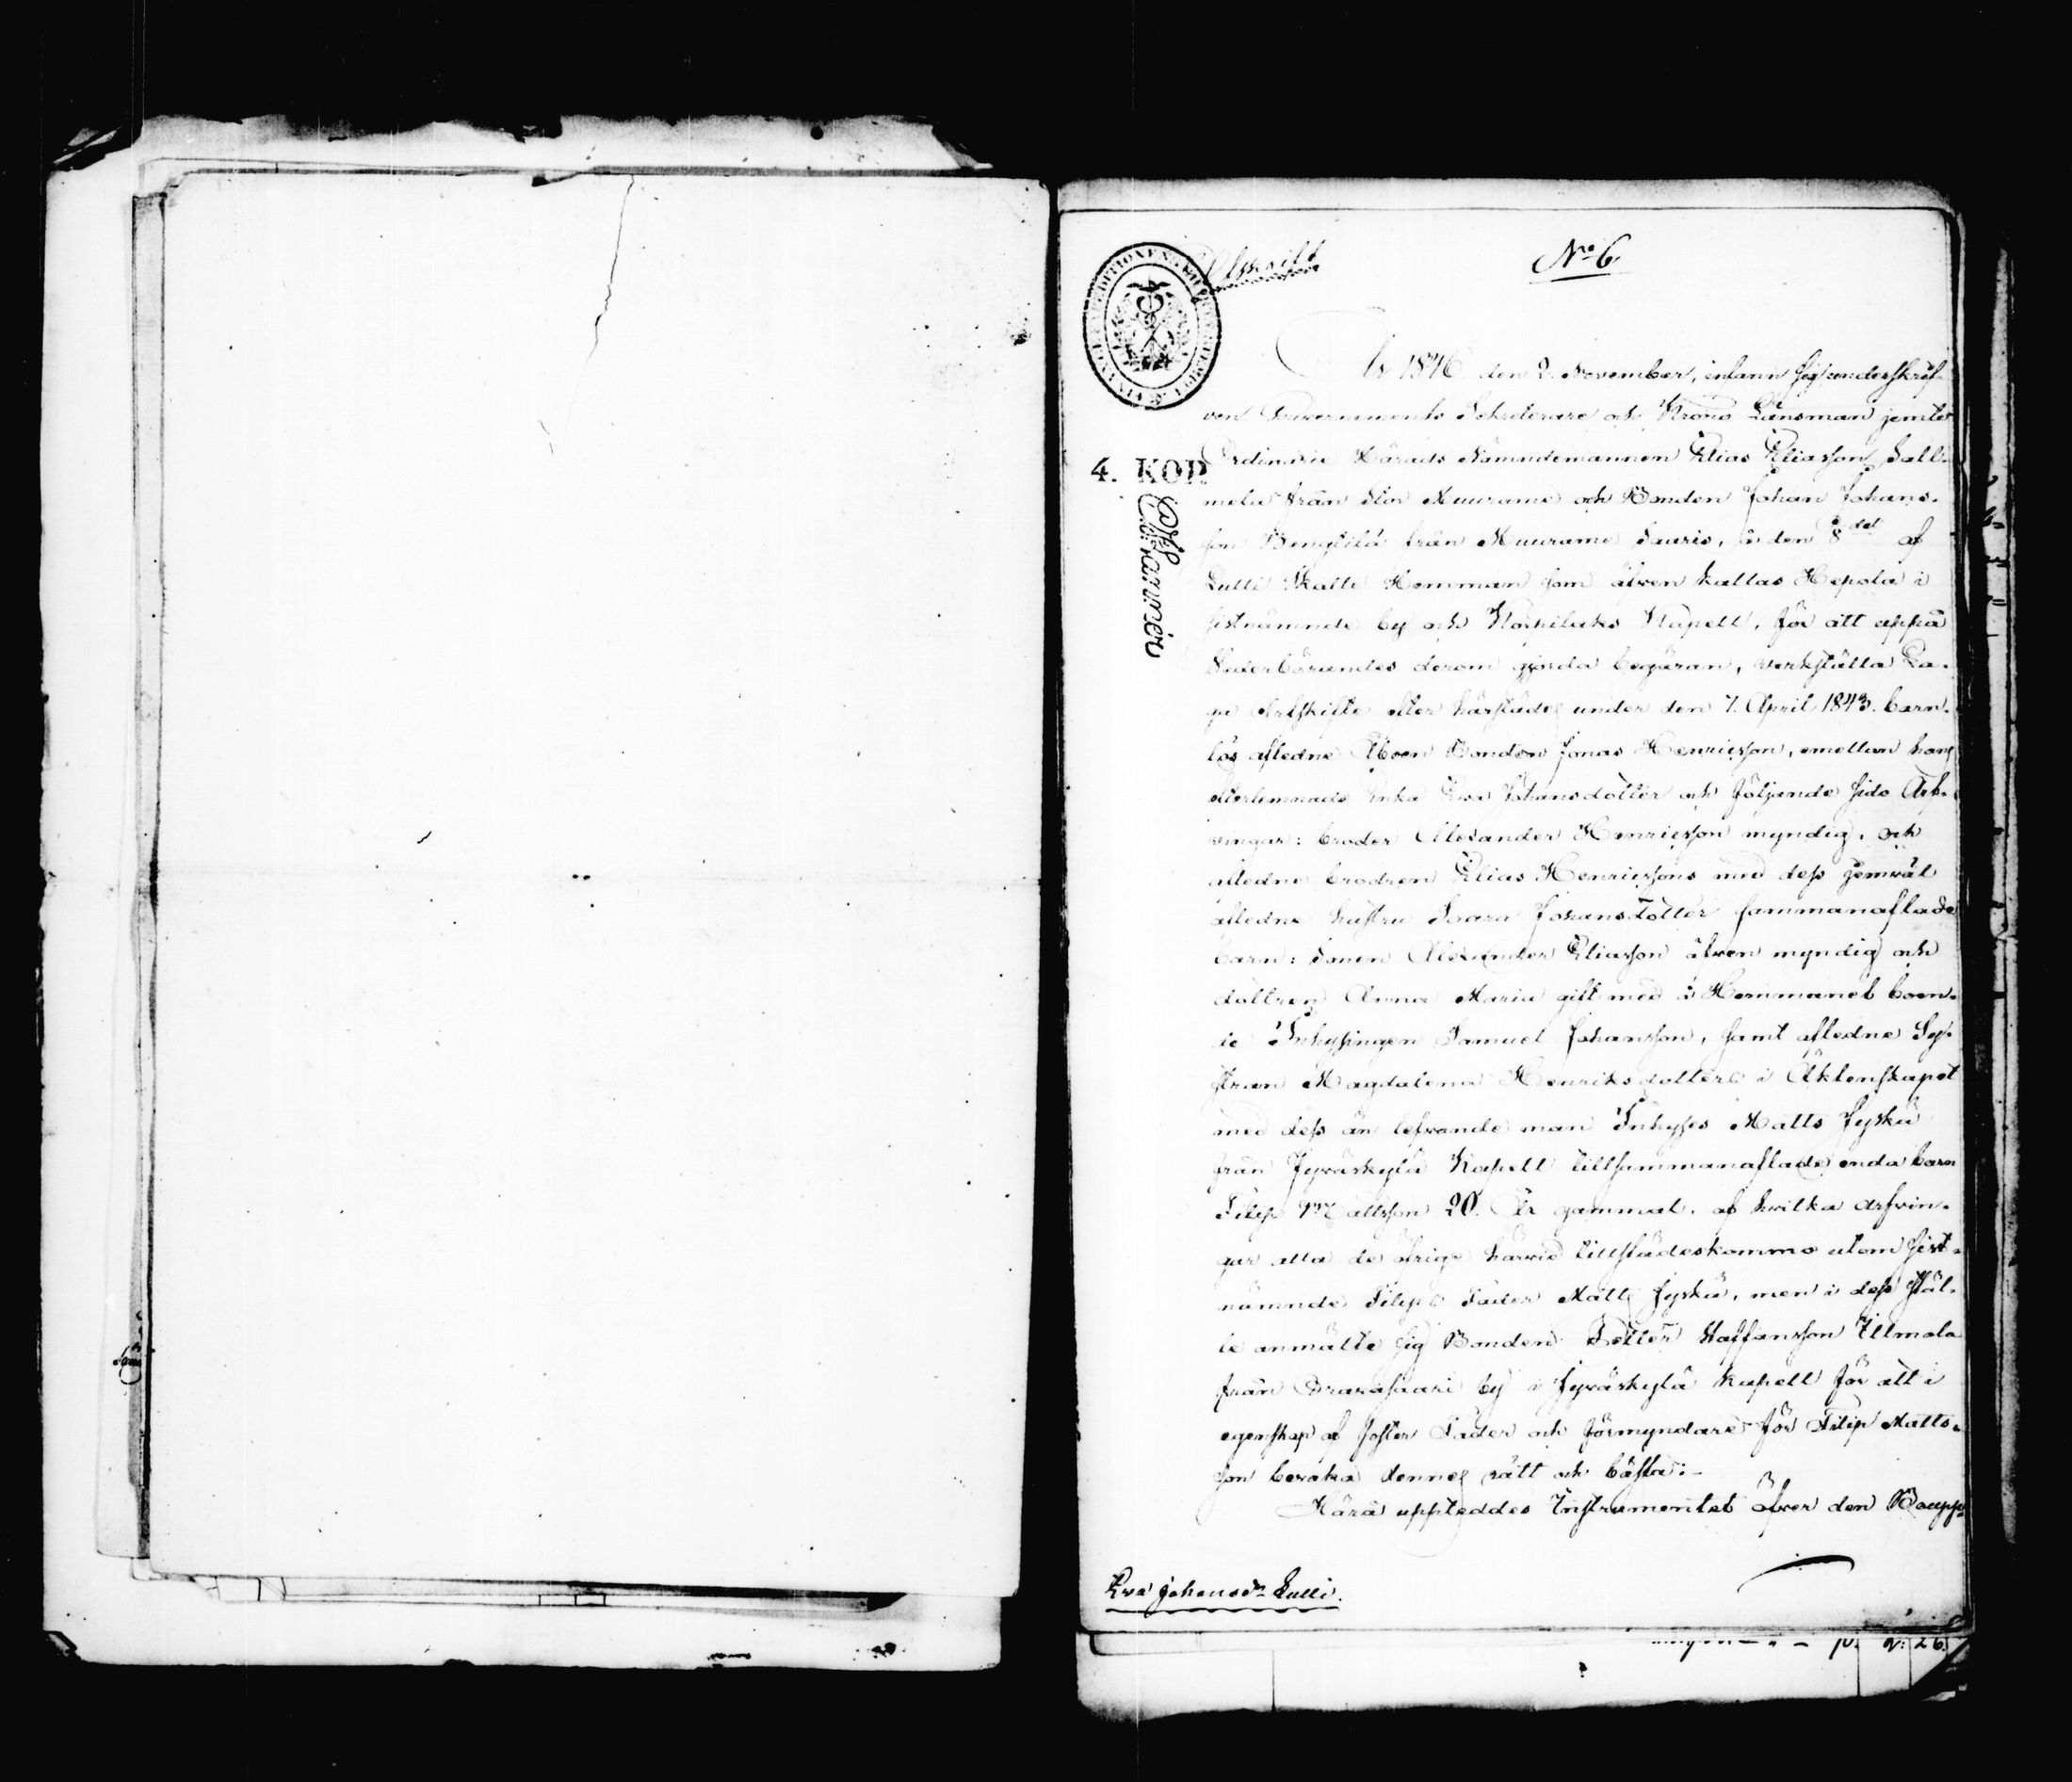 Afskrift
No 6.
4. KOP.
Chf: Hammar
År 1846 den 2. November, infann sig underskrif-
ven Guvernements Sekreterare och Krono Länsman jemte
Ordinarie Härads Nämndemannen Elias Eliasson Sall-
mela från Stor Muurame och Bonden Johan Johans-
son Bengtilä från Muurame Sauris, å den 8de af
Lulli Skatte Hemman som äfven kallas Hepola i
sistnämnde by och Korpilaks Kapell, för att uppå
Vederbörandes derom gjorda begäran, verkställa La-
ga Arfskifte efter härstädes under den 7. April 1843. barn-
lös afledne Åboen Bonden Jonas Henricsson, emellan hans
efterlemnade Enka Eva Johansdotter och följande sido Arf-
vingar: broder Alexander Henricsson myndig, och
afledne brodren Elias Henricssons med dess jemväl
afledne hustru Saara Johansdotter sammanaflade
barn: sonen Alexander Eliasson äfven myndig och
dottren Anna Maria gift med å Hemmanet boen-
de Inhysingen Samuel Johansson, samt afledne Sys-
tran Magdalena Henriksdotters i Äktenskapet
med dess än lefvande man Inhyses Matts Jyskä
från Jyväskylä Kapell tillsammanaflade enda barn
Filip Mattsson 20. År gammal, af hvilka arfvin-
gar alla de öfrige härvid tillstädeskommo utom sist-
nämnde Filips Fader Matts Jyskä, men i dess stäl-
le anmälte sig Bonden Petter Staffansson Illmala
från by i Jyväskylä Kapell för att i
egenskap af foster Fader och förmyndare för Filip Matts-
son bevaka dennes rätt och bästa:-
Härå uppteddes Instrumentet öfver den Boupp-
Eva Johansdr Lulli.